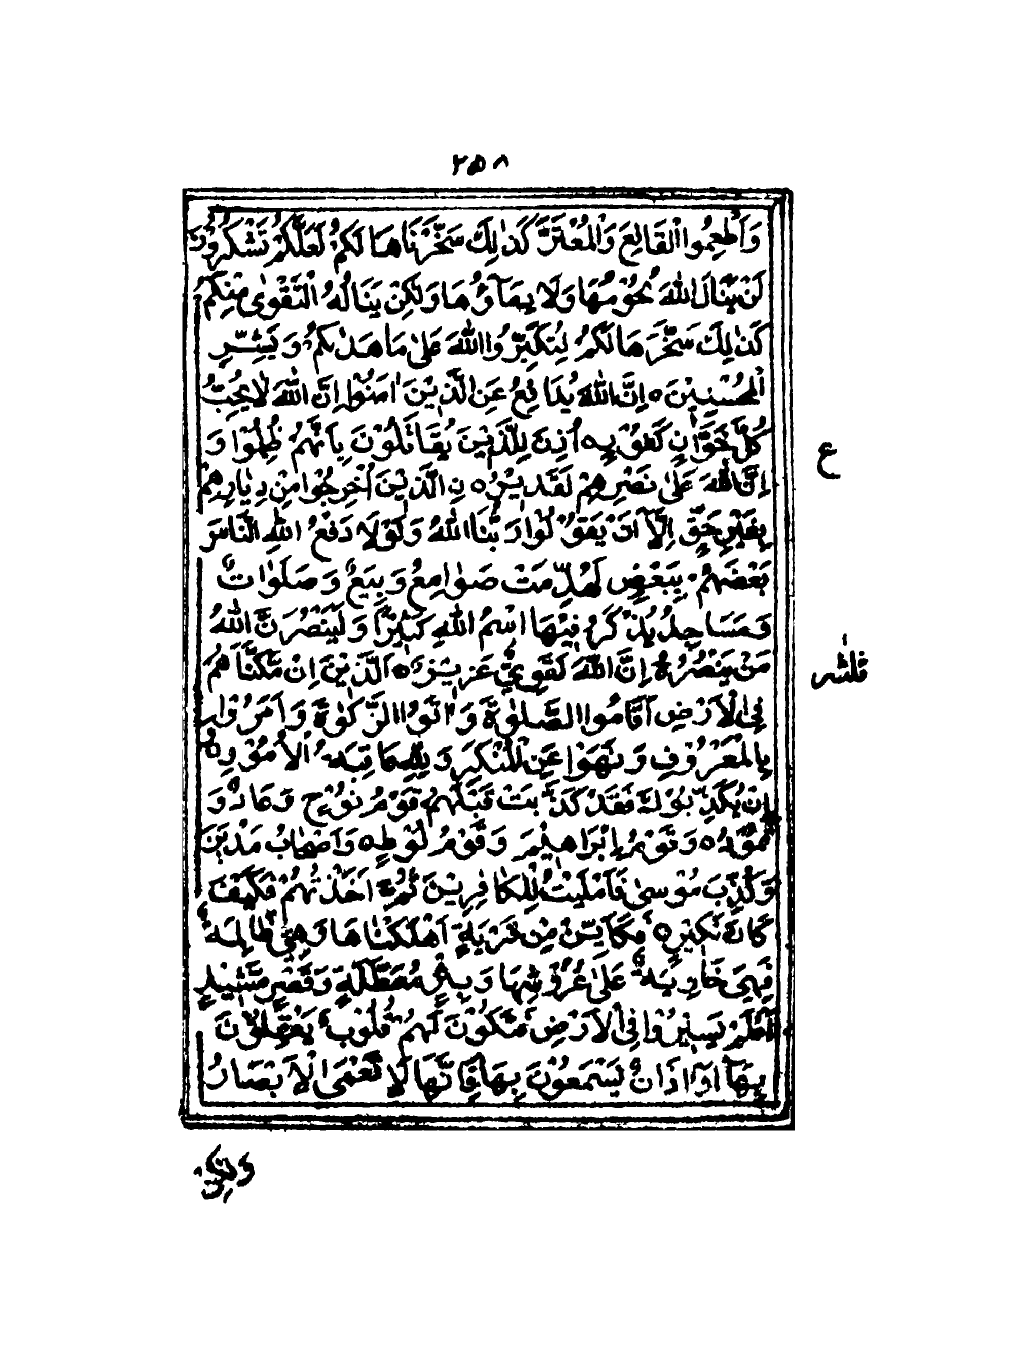 ۲۵۸
وَاَطْعِمُوا الْقَانِعَ وَالْمُعْتَرَّ كَذٰلِكَ سَخَّرْنَاهَا لَكُمْ لَعَلَّكُمْ تَشْكُرُوْنَ
لَنْ يَّنَالَ اللّٰهَ لُحُوْمُهَا وَلَا دِمَآؤُهَا وَلٰكِنْ يَّنَالُهُ التَّقْوٰى مِنْكُمْ
كَذٰلِكَ سَخَّرَهَا لَكُمْ لِتُكَبِّرُوا اللّٰهَ عَلٰى مَا هَدٰىكُمْ وَبَشِّرِ
الْمُحْسِنِيْنَ ۝ اِنَّ اللّٰهَ يُدَافِعُ عَنِ الَّذِيْنَ اٰمَنُوْا اِنَّ اللّٰهَ لَا يُحِبُّ
كُلَّ خَوَّانٍ كَفُوْرٍ ۝ اُذِنَ لِلَّذِيْنَ يُقَاتَلُوْنَ بِاَنَّهُمْ ظُلِمُوْا وَ
اِنَّ اللّٰهَ عَلٰى نَصْرِهِمْ لَقَدِيْرُ ۝ نِ الَّذِيْنَ اُخْرِجُوْا مِنْ دِيَارِهِمْ
بِغَيْرِ حَقٍّ اِلَّآ اَنْ يَّقُوْلُوْا رَبُّنَا اللّٰهُ وَلَوْلَا دَفْعُ اللّٰهِ النَّاسَ
بَعْضَهُمْ بِبَعْضٍ لَهُدِّمَتْ صَوَامِعُ وَبِيَعٌ وَصَلَوَاتٌ
وَمَسَاجِدُ يُذْكَرُ فِيْهَا اسْمُ اللّٰهِ كَثِيْرًا وَلَيَنْصُرَنَّ اللّٰهُ
مَنْ يَنْصُرُهُ اِنَّ اللّٰهَ لَقَوِيٌّ عَزِيْزٌ ۝ الَّذِيْنَ اِنْ مَّكَّنَّاهُمْ
فِى الْاَرْضِ اَقَامُوا الصَّلٰوةَ وَاٰتَوُا الزَّكٰوةَ وَاَمَرُوْا
بِالْمَعْرُوْفِ وَنَهَوْا عَنِ الْمُنْكَرِ وَلِلّٰهِ عَاقِبَةُ الْاُمُوْرِ ۝ وَ
اِنْ يُكَذِّبُوْكَ فَقَدْ كَذَّبَتْ قَبْلَهُمْ قَوْمُ نُوْحٍ وَعَادٌ وَ
ثَمُوْدُ ۝ وَقَوْمُ اِبْرَاهِيْمَ وَقَوْمُ لُوْطٍ ۝ وَاَصْحَابُ مَدْيَنَ
وَكُذِّبَ مُوْسٰى فَاَمْلَيْتُ لِلْكَافِرِيْنَ ثُمَّ اَخَذْتُهُمْ فَكَيْفَ
كَانَ نَكِيْرِ ۝ فَكَاَيِّنْ مِنْ قَرْيَةٍ اَهْلَكْنَاهَا وَهِيَ ظَالِمَةٌ
فَهِيَ خَاوِيَةٌ عَلٰى عُرُوْشِهَا وَبِئْرٍ مُعَطَّلَةٍ وَقَصْرٍ مَّشِيْدٍ
اَفَلَمْ يَسِيْرُوْا فِى الْاَرْضِ فَتَكُوْنَ لَهُمْ قُلُوْبٌ يَعْقِلُوْنَ
بِهَا اَوْ اٰذَانٌ يَسْمَعُوْنَ بِهَا فَاِنَّهَا لَا تَعْمَى الْاَبْصَارُ
ع
ولكن